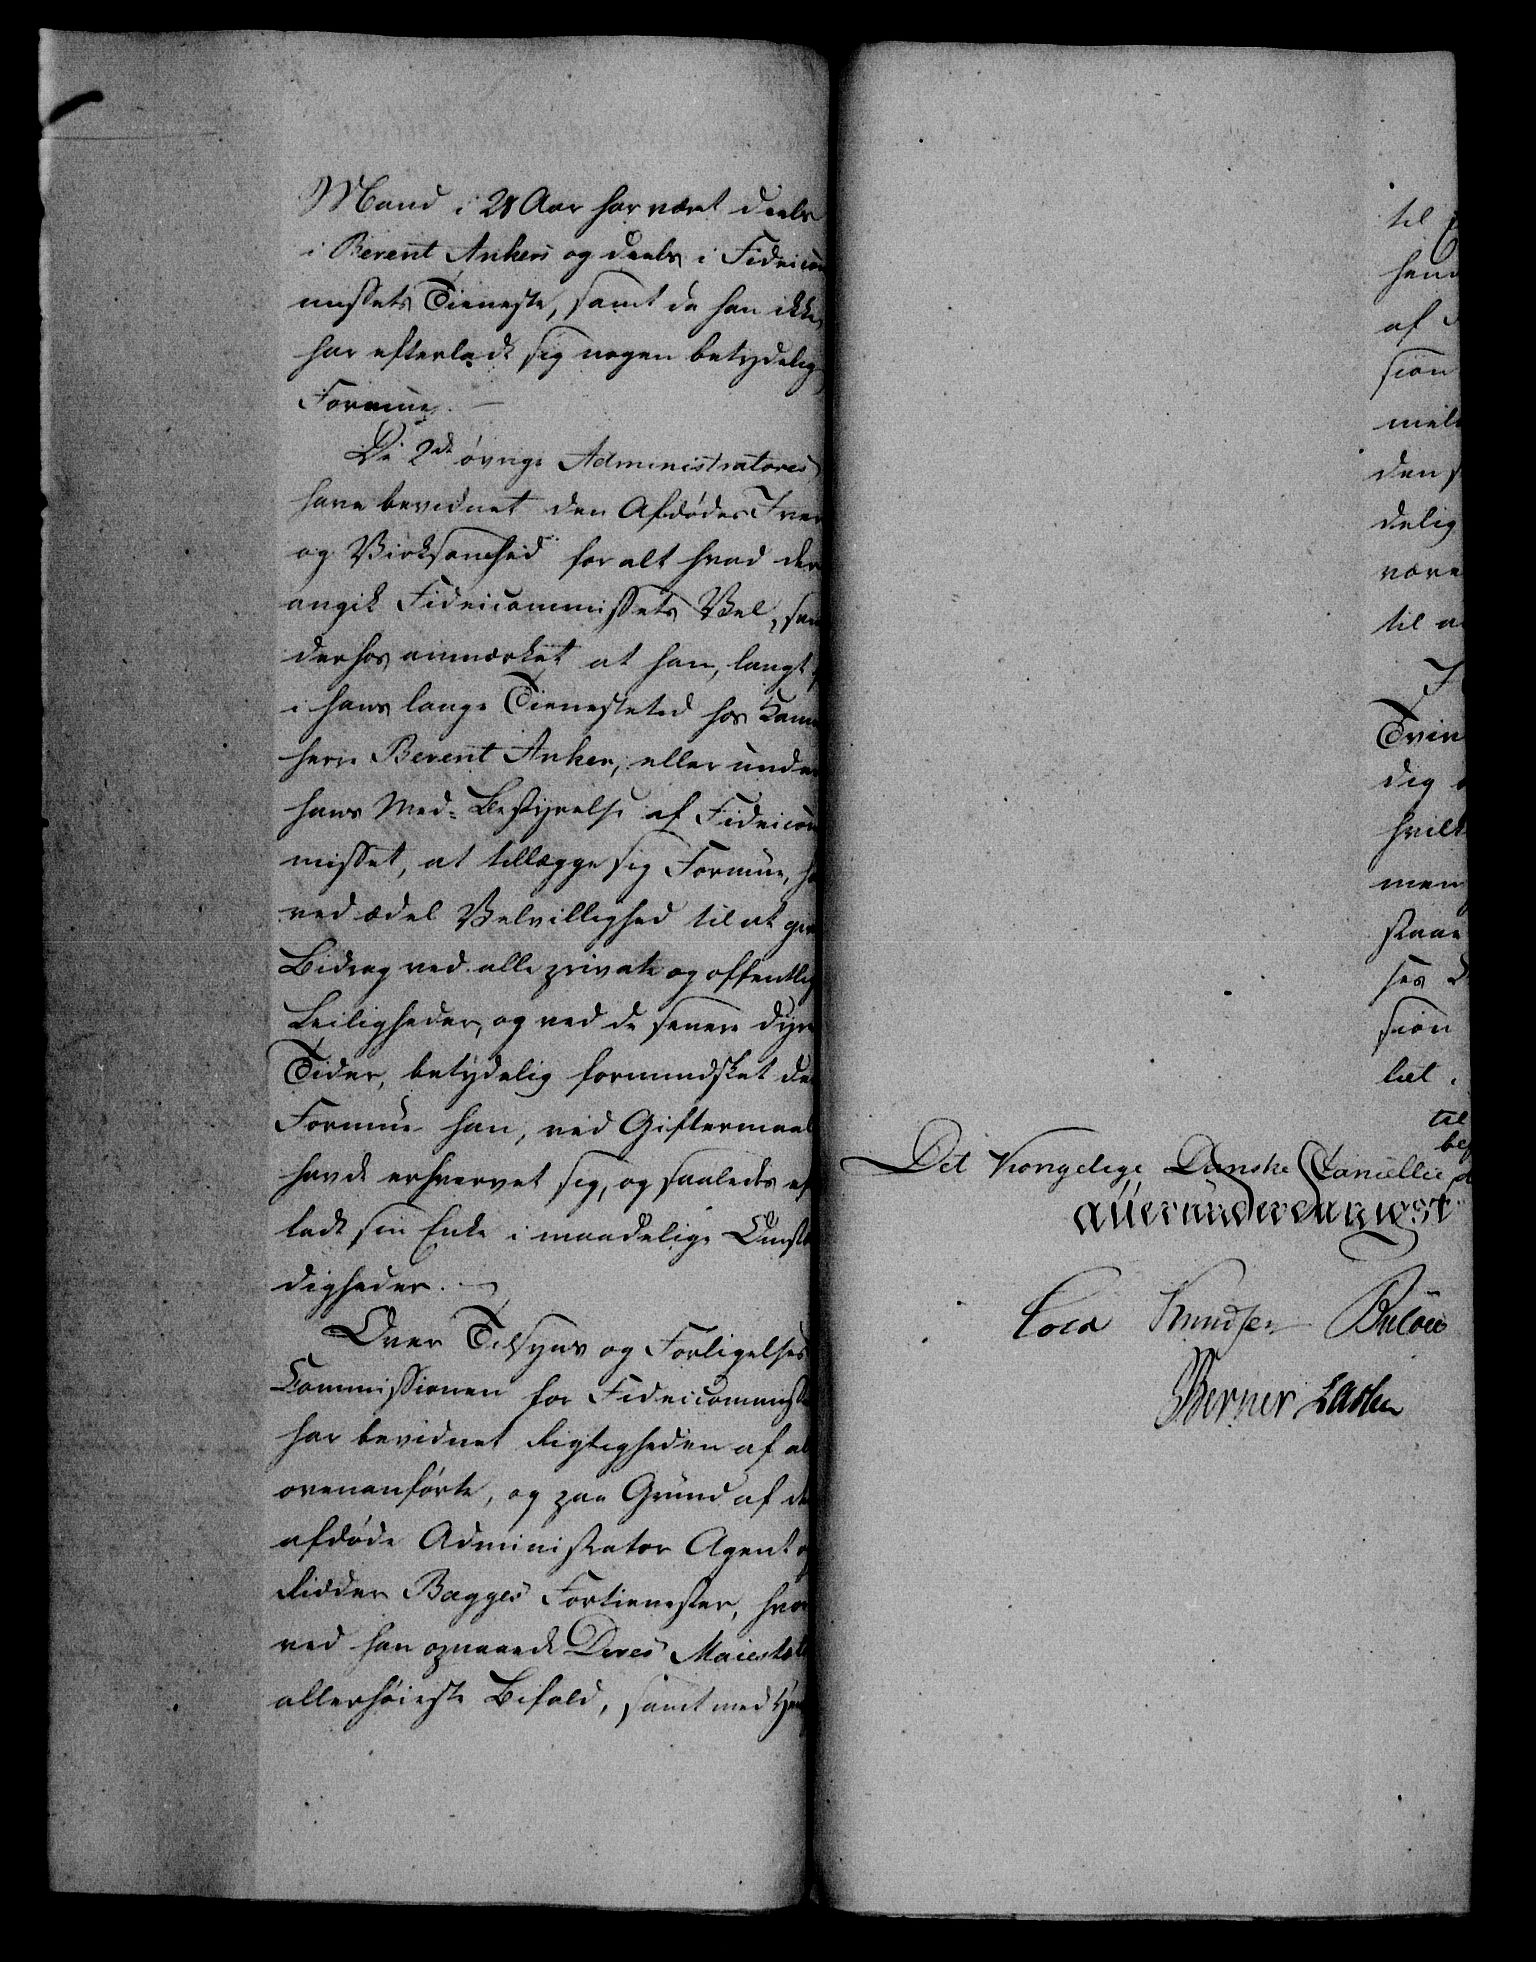 Mand i 28 Aar har været deels
i Berent Ankers og deels i Fideicom
missets Tieneste, samt da han ikke
har efterladt sig nogen betydelig
Formue. —
De 2de øvrige Administratores
have bevidnet den Afdødes Iver
og Virksomhed for alt hvad der
angik Fideicommissets Vel, sam
derhos anmærket, at han, langt f
i hans lange Tienestetid hos Kam
herre Berent Anker, eller under
hans Med-Bestyrelse af Fideicom
misset, at tillægge sig Formue, ha
ved ædel Velvillighed til at giv
Bidrag ved alle private og offentlig
Leiligheder, og ved de senere dyre
Tider, betydelig formindsket den
Formue han, ved Giftermaal
havde erhvervet sig, og saaledes ef
ladt sin Enke i maadelige Omstæn
digheder. —
Over Tilsyns og Forligelses
Commissionen for Fideicommisset
har bevidnet Rigtigheden af al
ovenanførte, og paa Grund af de
afdøde Administrator Agent og
Ridder Bagges Fortienester, hvor
ved han opnaaede Deres Maiestæts
allerhøieste Bifald, samt med Hen
til
hend
af
sion
meld
den s
delig
være
til a
Trin
dig
hvilk
men
staae
ses
sion
lal
til
bef
Det Kongelige Danske Cancellie
allerunderdanigst
Cold Knudsen Bülow
Berner Lassen